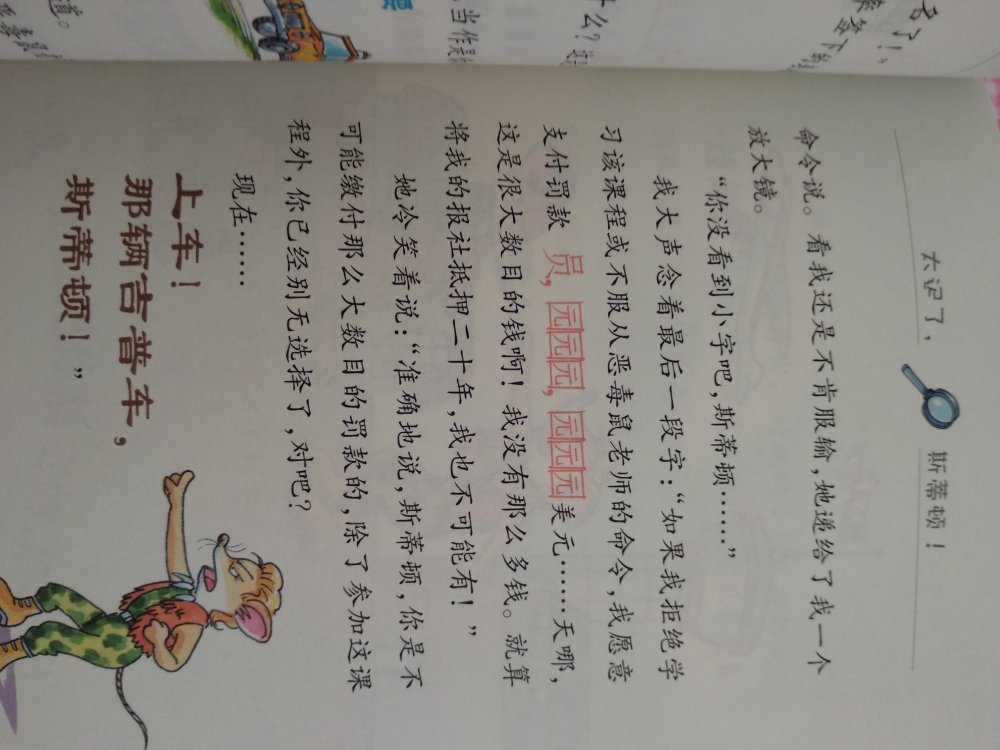 太记了，
斯蒂顿！
命令说。看我还是不肯服输，她递给了我一个
放大镜。
“你没看到小字吧，斯蒂顿……”
我大声念着最后一段字：“如果我拒绝学
习该课程或不服从恶毒鼠老师的命令，我愿意
支付罚款 员，园园园，园园园美元……天哪，
这是很大数目的钱啊！我没有那么多钱。就算
将我的报社抵押二十年，我也不可能有！”
她冷笑着说：“准确地说，斯蒂顿，你是不
可能缴付那么大数目的罚款的，除了参加这课
程外，你已经别无选择了，对吧？
现在……
上车！
那辆吉普车，
斯蒂顿！”
什么？
当作是
道。